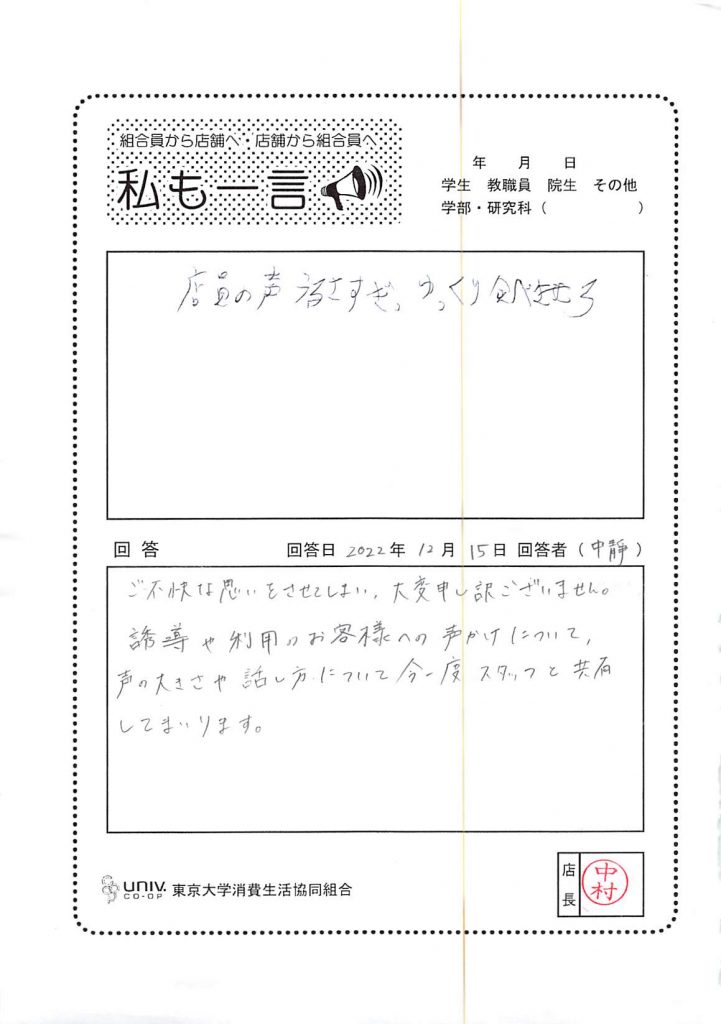 組合員から店舗へ・店舗から組合員へ
私も一言
年 月 日
学生 教職員 院生 その他
学部・研究科（ ）
店員の声 すぎ。ゆっくり食べさせろ
回答 回答日 2022年 12月 15日 回答者（中静）
ご不快な思いをさせてしまい、大変申し訳ございません。
誘導や利用のお客様への声かけについて、
声の大きさや話し方について今一度スタッフと共有
してまいります。
UNIV. CO-OP 東京大学消費生活協同組合
店長 中村